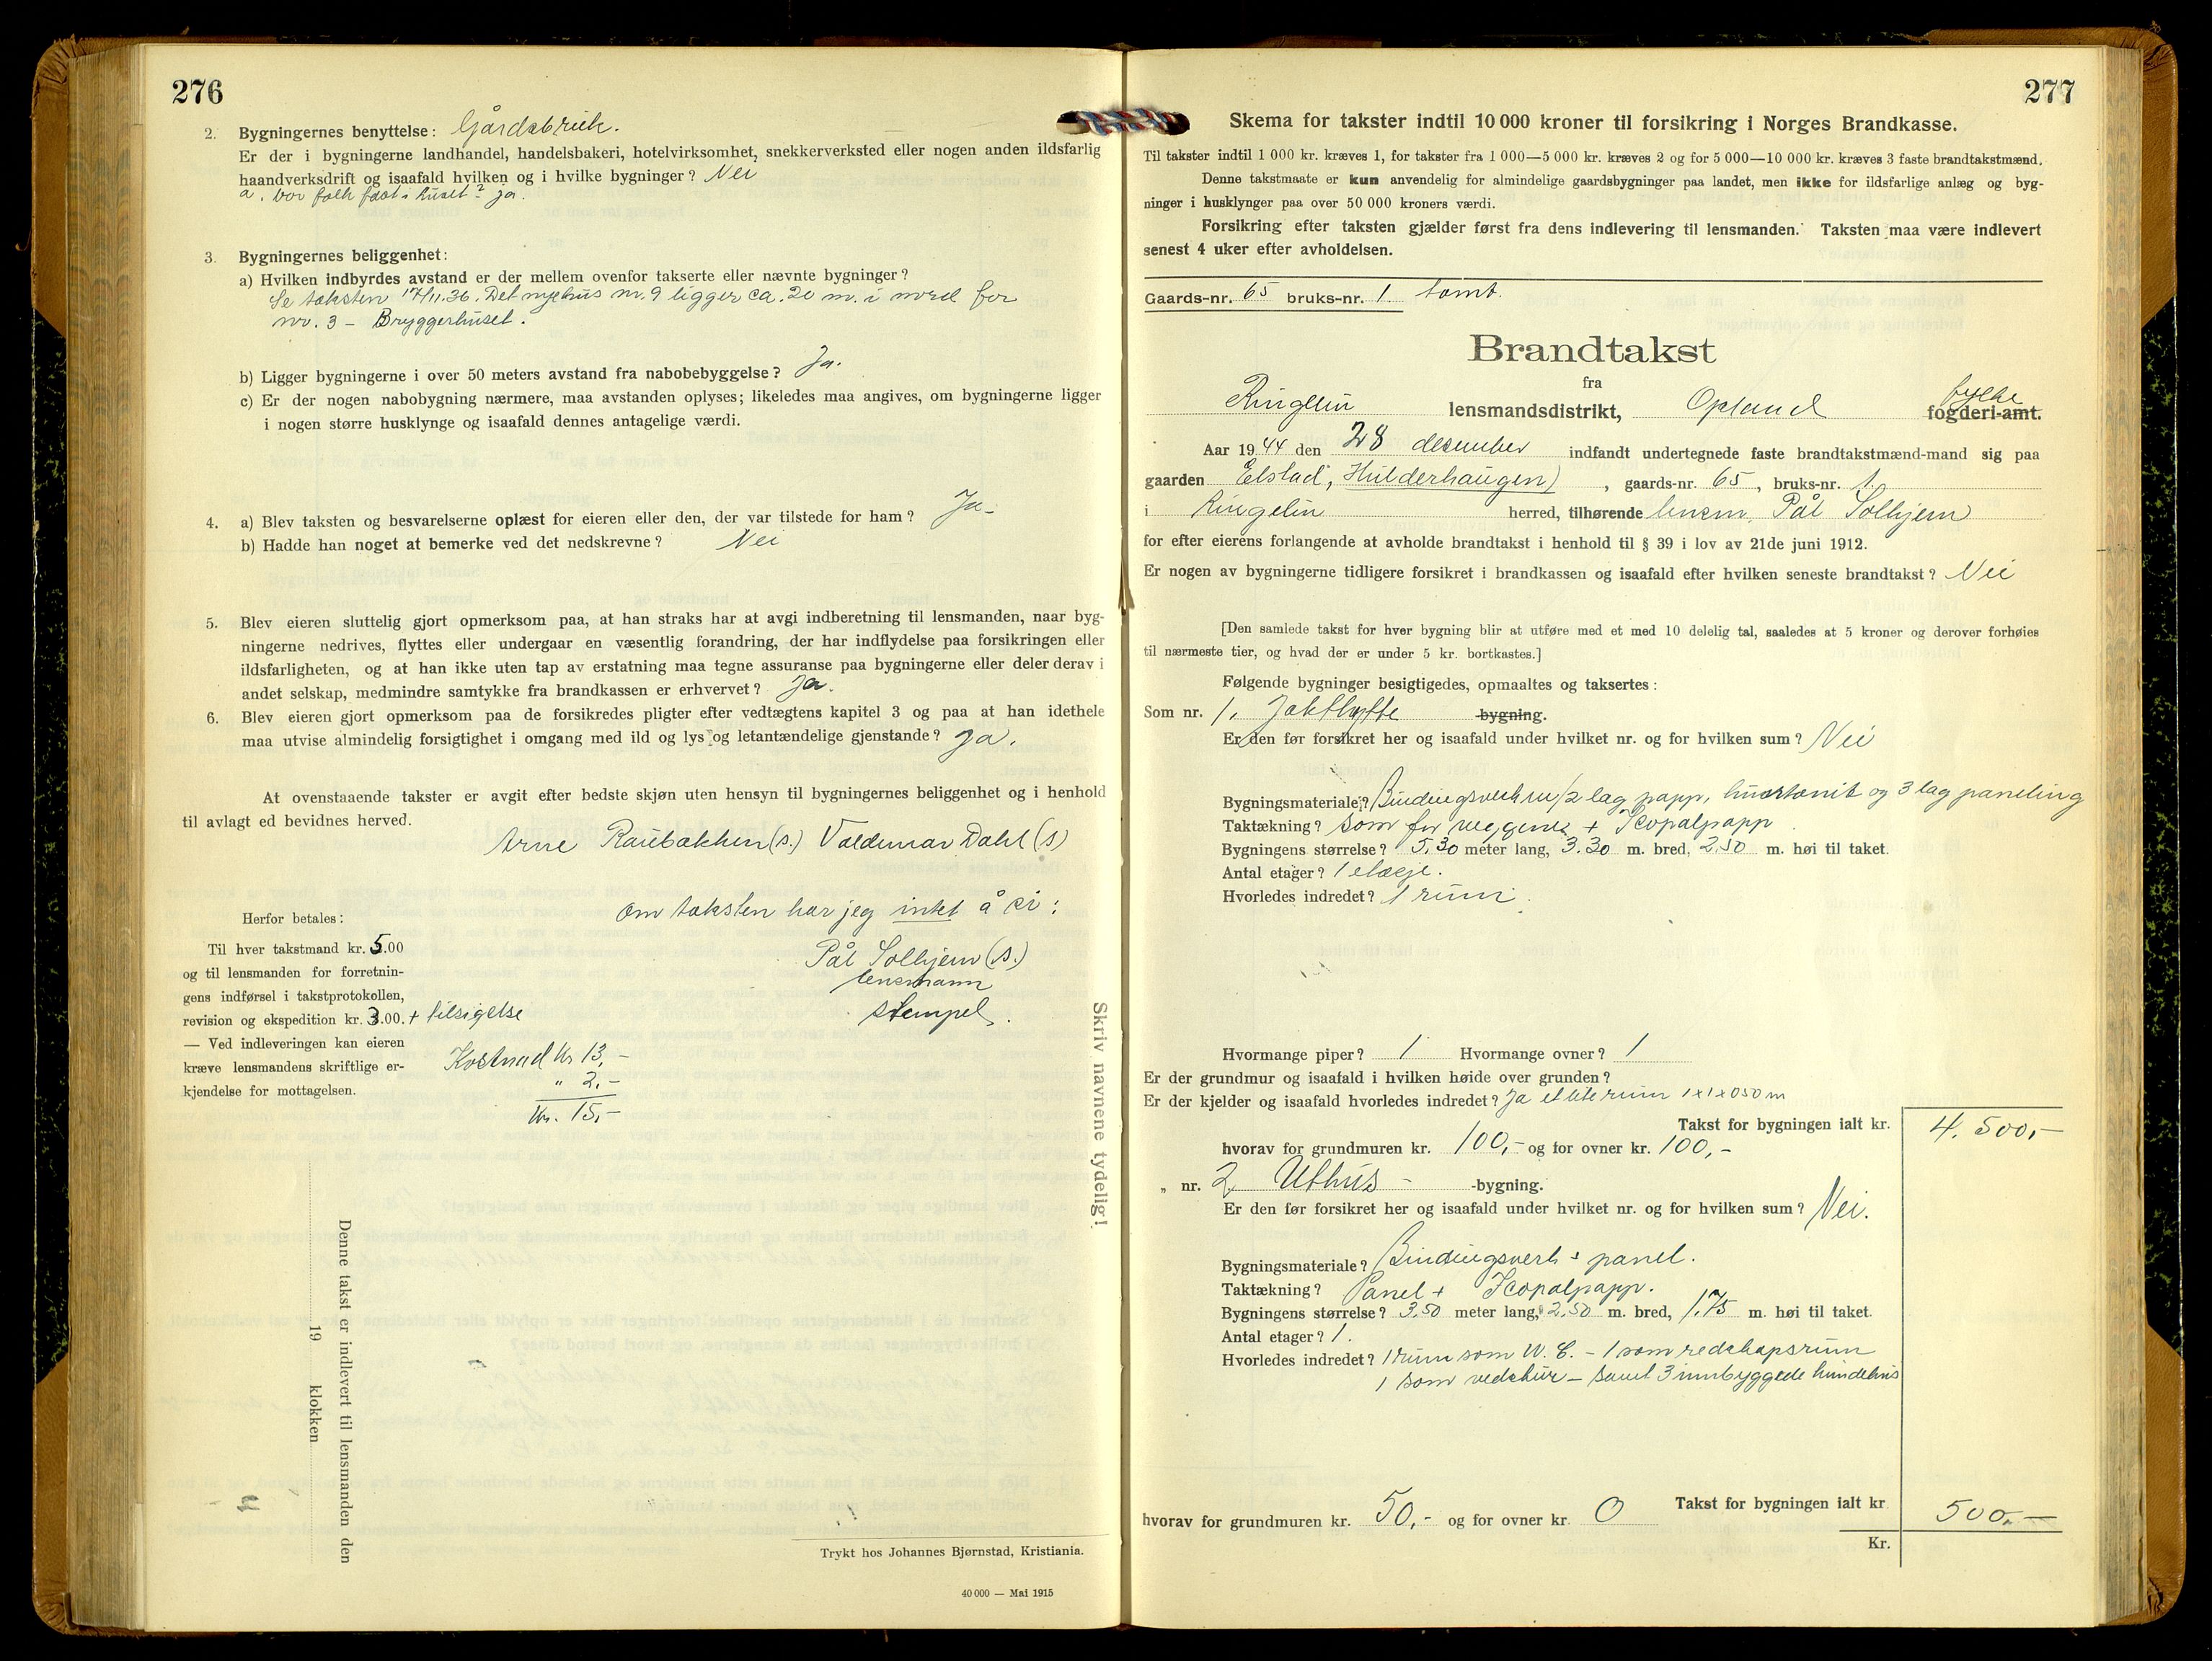 276
2. Bygningernes benyttelse: Gårdsbruk.
Er der i bygningerne landhandel, handelsbakeri, hotelvirksomhet, snekkerverksted eller nogen anden ildsfarlig
haandverksdrift og isaafald hvilken og i hvilke bygninger? Nei
a. bor folk fast i huset? ja.
3. Bygningernes beliggenhet:
a) Hvilken indbyrdes avstand er der mellem ovenfor takserte eller nævnte bygninger?
Se taksten 17/11.36. Det nye hus nr. 9 ligger ca. 20 m. i nord for
nr. 3 – Bryggerhuset.
b) Ligger bygningerne i over 50 meters avstand fra nabobebyggelse? Ja.
c) Er der nogen nabobygning nærmere, maa avstanden oplyses; likeledes maa angives, om bygningerne ligger
i nogen større husklynge og isaafald dennes antagelige værdi.
4. a) Blev taksten og besvarelserne oplæst for eieren eller den, der var tilstede for ham? Ja-
b) Hadde han noget at bemerke ved det nedskrevne? Nei
5. Blev eieren sluttelig gjort opmerksom paa, at han straks har at avgi indberetning til lensmanden, naar byg-
ningerne nedrives, flyttes eller undergaar en væsentlig forandring, der har indflydelse paa forsikringen eller
ildsfarligheten, og at han ikke uten tap av erstatning maa tegne assuranse paa bygningerne eller deler derav i
andet selskap, medmindre samtykke fra brandkassen er erhvervet? Ja.
6. Blev eieren gjort opmerksom paa de forsikredes pligter efter vedtægtens kapitel 3 og paa at han idethele
maa utvise almindelig forsigtighet i omgang med ild og lys og letantændelige gjenstande? Ja.
At ovenstaaende takster er avgit efter bedste skjøn uten hensyn til bygningernes beliggenhet og i henhold
til avlagt ed bevidnes herved.
Arne Raubakken (s.) Valdemar Dahl (s)
Om taksten har jeg intet å si:
Pål Solhjem (s.)
lensmann
stempel.
Herfor betales:
Til hver takstmand kr. 5.00
og til lensmanden for forretnin-
gens indførsel i takstprotokollen,
revision og ekspedition kr. 3.00. + tilsigelse
— Ved indleveringen kan eieren
kræve lensmandens skriftlige er-
kjendelse for mottagelsen.
Kostnad kr 13,-
" 2,-
Kr. 15,-
Skriv navnene tydelig!
Denne takst er indlevert til lensmanden den
19 klokken
Trykt hos Johannes Bjørnstad, Kristiania.
40 000 — Mai 1915
277
Skema for takster indtil 10 000 kroner til forsikring i Norges Brandkasse.
Til takster indtil 1 000 kr. kræves 1, for takster fra 1 000—5 000 kr. kræves 2 og for 5 000—10 000 kr. kræves 3 faste brandtakstmænd.
Denne takstmaate er kun anvendelig for almindelige gaardsbygninger paa landet, men ikke for ildsfarlige anlæg og byg-
ninger i husklynger paa over 50 000 kroners værdi.
Forsikring efter taksten gjælder først fra dens indlevering til lensmanden. Taksten maa være indlevert
senest 4 uker efter avholdelsen.
Gaards-nr. 65 bruks-nr. 1. tomt.
Brandtakst
fra
Ringebu lensmandsdistrikt, Opland fylke fogderi-amt.
Aar 1944 den 28 desember indfandt undertegnede faste brandtakstmænd-mand sig paa
gaarden Elstad, Hulderhaugen) , gaards-nr. 65, bruks-nr. 1.
i Ringebu herred, tilhørende lensm. Pål Solhjem
for efter eierens forlangende at avholde brandtakst i henhold til § 39 i lov av 21de juni 1912.
Er nogen av bygningerne tidligere forsikret i brandkassen og isaafald efter hvilken seneste brandtakst? Nei
[Den samlede takst for hver bygning blir at utføre med et med 10 delelig tal, saaledes at 5 kroner og derover forhøies
til nærmeste tier, og hvad der er under 5 kr. bortkastes.]
Følgende bygninger besigtigedes, opmaaltes og taksertes:
Som nr. 1. Jakthytte -bygning.
Er den før forsikret her og isaafald under hvilket nr. og for hvilken sum? Nei
Bygningsmateriale? Bindingsverk m/2 lag papp, huntonit og 3 lag paneling
Taktækning? som for veggene + Icopalpapp
Bygningens størrelse? 5,30 meter lang, 3.30 m. bred, 2,50 m. høi til taket.
Antal etager? 1 etasje.
Hvorledes indredet? 1 rum.
Hvormange piper? 1 Hvormange ovner? 1
Er der grundmur og isaafald i hvilken høide over grunden?
Er der kjelder og isaafald hvorledes indredet? Ja et lite rum 1x1x050 m
Takst for bygningen ialt kr. 4.500,-
hvorav for grundmuren kr. 100,- og for ovner kr. 100,-
„ nr. 2 Uthus - -bygning.
Er den før forsikret her og isaafald under hvilket nr. og for hvilken sum? Nei.
Bygningsmateriale? Bindingsverk + panel.
Taktækning? Panel + Icopalpapp.
Bygningens størrelse? 3,50 meter lang, 2,50 m. bred, 1.75 m. høi til taket.
Antal etager? 1.
Hvorledes indredet? 1 rum som W.C. – 1 som redskapsrum
1 som vedskur – samt 3 innbyggede hundehus
Takst for bygningen ialt kr 500,-
hvorav for grundmuren kr. 50,- og for ovner kr. 0
Kr.